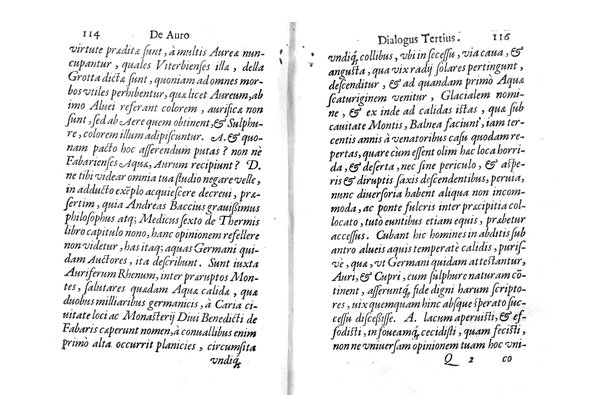 114 De Auro
virtute præditæ sunt, à multis Aureæ nun-
cupantur, quales Viterbienses illæ, della
Grotta dictæ sunt, quoniam ad omnes mor-
bos vtiles perhibentur, quæ licet Aureum, ab
imo Aluei referant colorem, aurificæ non
sunt, sed ab Aere quem obtinent, & Sulphu-
re, colorem illum adipiscuntur. A. & quo-
nam pacto hoc asserendum putas? nè
Fabariensës Aquæ, Aurum recipiunt? D.
ne tibi videar omnia tua studio negare velle,
in adducto exẽplo acquiescere decreui, præ-
sertim, quia Andreas Baccius grauissimus
philosophus atq; Medicus sexto de Thermis
libro capitulo nono, hanc opinionem refellere
non videtur, has itaq; aquas Germani qui-
dam Auctores, ita describunt. Sunt iuxta
Auriferum Rhenum, inter præruptos Mon-
tes, salutares quædam Aquæ calidæ, quæ
duobus milliaribus germanicis, à Caria ci-
uitate loci ac Monasterij Diui Benedicti de
Fabaris cæperunt nomen, à conuallibus enim
primò altæ occurrit planicies, circumsita
vndiq;
Dialogus Tertius. 116
vndiq, collibus, vbi in secessu, via caua, &
angusta, qua vix radij solares pertingunt,
descenditur, & ad quandam primo Aquæ
scaturiginem venitur, Glacialem nomi-
ne, & ex inde ad calidas istas, quæ sub
cauitate Montis, Balnea faciunt, iam ter-
centis annis à venatoribus casu quodam re-
pertas, quare cum essent olim hæc loca horri-
da, & deserta, nec sine periculo, & aspe-
ris, & diruptis saxis descendentibus, peruia,
nunc diuersoria habent aliqua non incom-
moda, ac ponte fulcris inter præcipitia col-
locato, tutò euntibus etiam equis, præbetur
accessus. Cubant hic homines in abditis sub
antro alueis aquis temperatè calidis, purif-
vè, quæ, vt Germani quidam attestantur,
Auri, & Cupri, cum sulphure naturam cõ-
tinent, asserunt'q; fide digni harum scripto-
res, vix quemquam hinc absque sperato suc-
cessu discessisse. A. lacum aperuisti, & ef-
fodisti, in foueamq; cecidisti, quam fecisti,
non ne vniuersam opinionem tuam hoc vni-
Q 2 co